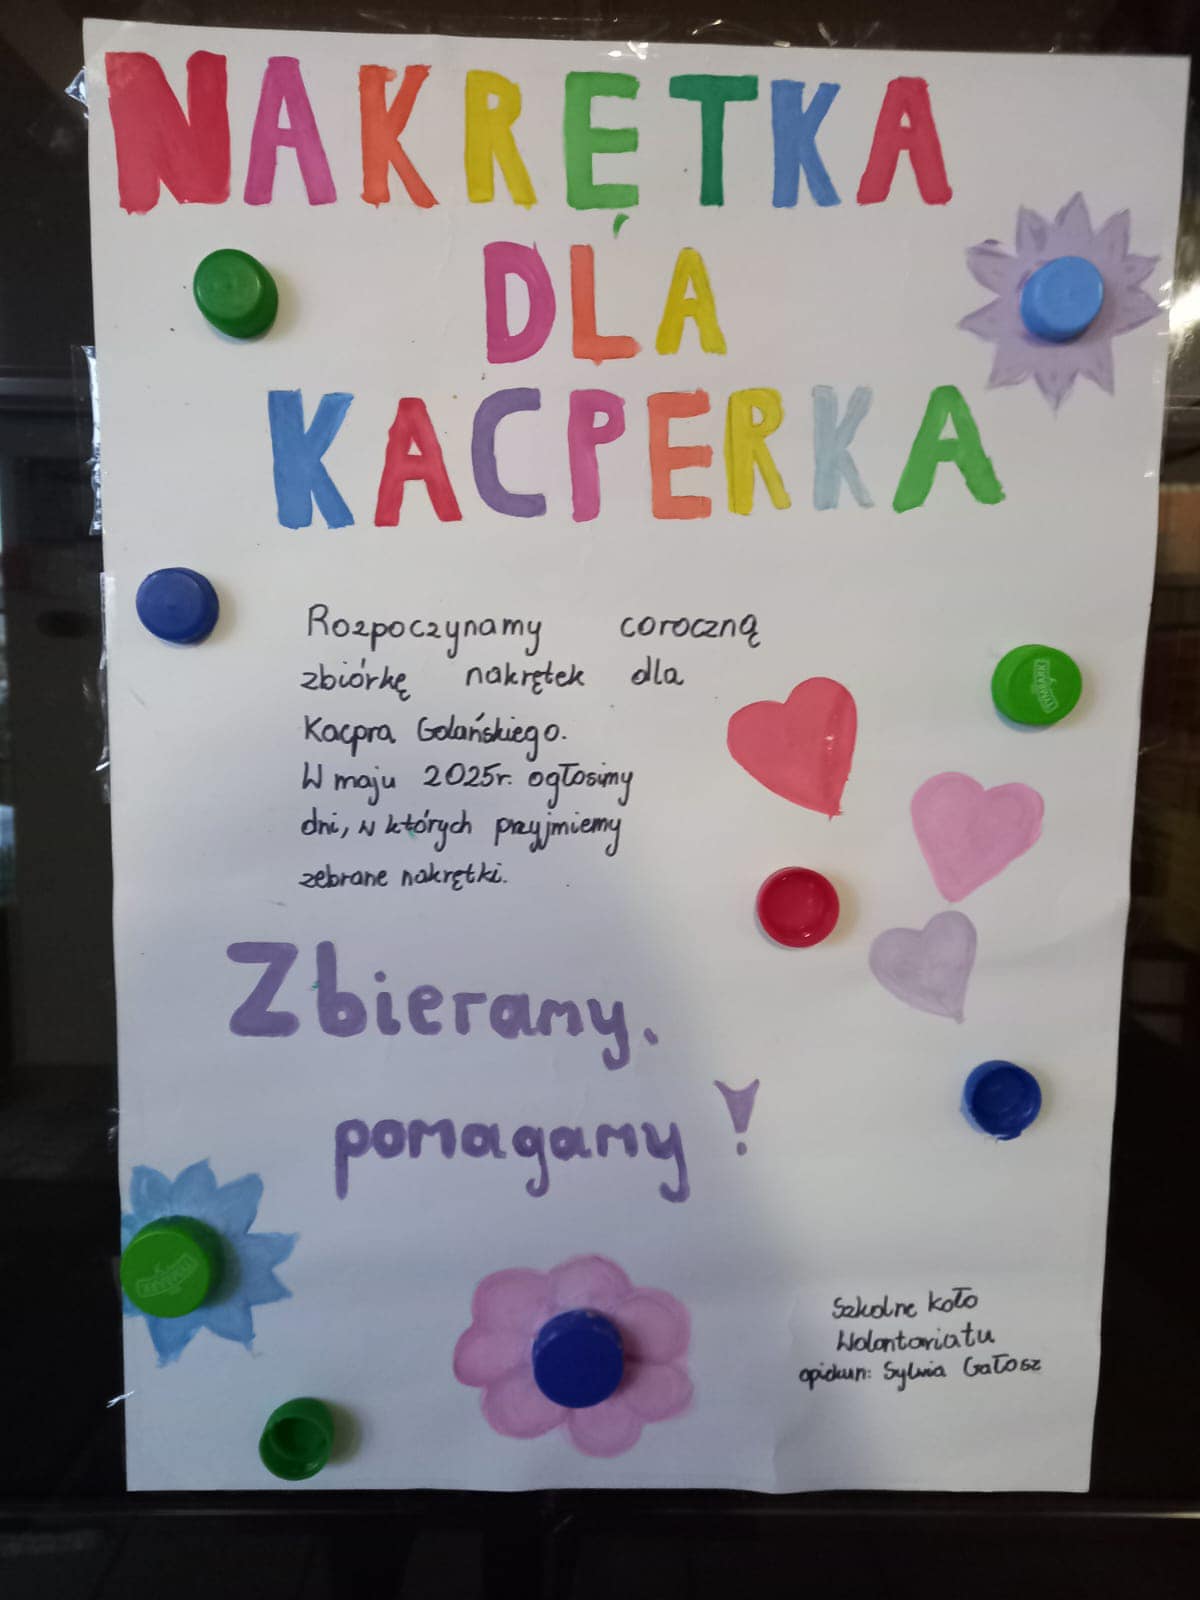 NAKRĘTKA
DLA
KACPERKA
Rozpoczynamy coroczną
zbiórkę nakrętek dla
Kacpra Golańskiego.
W maju 2025r. ogłosimy
dni, w których przyjmiemy
zebrane nakrętki.
Zbieramy.
pomagamy!
Szkolne Koło
Wolontariatu
opiekun: Sylwia Gałosz